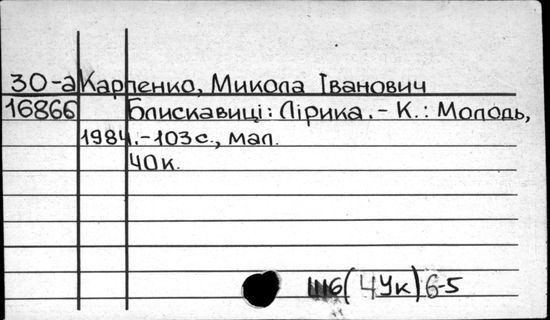 30-а Карпенко, Микола Іванович
16866 Блискавиці: Лірика. - К.: Молодь,
1984. - 103 с., мал.
40к.
Ш6(4Ук)6-5